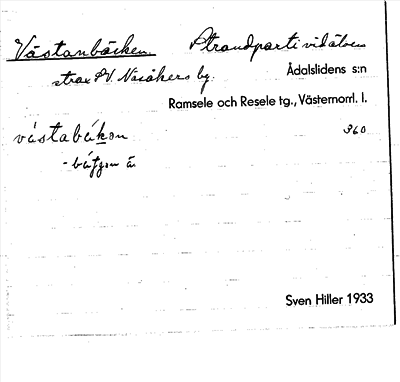 Västanbäcken. Strandparti vid älven
strax SV Näsåkers by. Ådalslidens s:n
Ramsele och Resele tg., Västernorrl. l.
västabäkon 360
Sven Hiller 1933